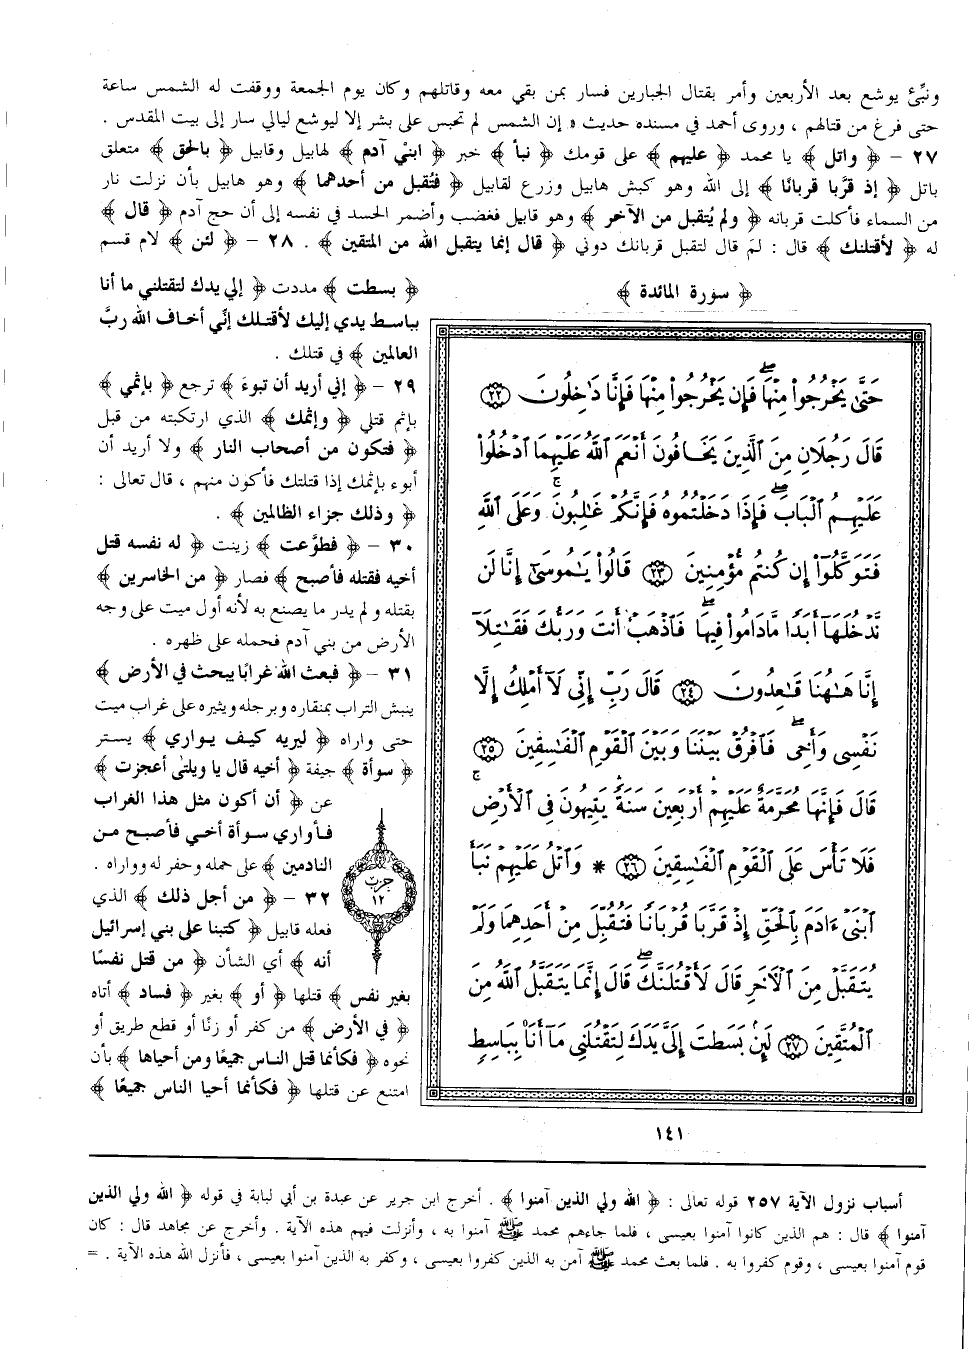 ونبِّئ يوشع بعد الأربعين وأمر بقتال الجبارين فسار بمن بقي معه وقاتلهم وكان يوم الجمعة ووقفت له الشمس ساعة
حتى فرغ من قتالهم ، وروى أحمد في مسنده حديث « إن الشمس لم تحبس على بشر إلا ليوشع ليالي سار إلى بيت المقدس .
٢٧ – ﴿ واتل ﴾ يا محمد ﴿ عليهم ﴾ على قومك ﴿ نبأ ﴾ خبر ﴿ ابنَيْ آدم ﴾ لهابيل وقابيل ﴿ بالحق ﴾ متعلق
باتل ﴿ إذ قرَّبا قربانًا ﴾ إلى الله وهو كبش هابيل وزرع لقابيل ﴿ فتُقبل من أحدهما ﴾ وهو هابيل بأن نزلت نار
من السماء فأكلت قربانه ﴿ ولم يُتقبل من الآخر ﴾ وهو قابيل فغضب وأضمر الحسد في نفسه إلى أن حج آدم ﴿ قال ﴾
له ﴿ لأقتلنك ﴾ قال : لمَ قال لتقبل قربانك دوني ﴿ قال إنما يتقبل الله من المتقين ﴾ . ٢٨ – ﴿ لئن ﴾ لام قسم
﴿ سورة المائدة ﴾
حَتَّىٰ يَخْرُجُوا۟ مِنْهَا ۖ فَإِن يَخْرُجُوا۟ مِنْهَا فَإِنَّا دَٰخِلُونَ ٢٢
قَالَ رَجُلَانِ مِنَ ٱلَّذِينَ يَخَافُونَ أَنْعَمَ ٱللَّهُ عَلَيْهِمَا ٱدْخُلُوا۟
عَلَيْهِمُ ٱلْبَابَ ۖ فَإِذَا دَخَلْتُمُوهُ فَإِنَّكُمْ غَٰلِبُونَ ۚ وَعَلَى ٱللَّهِ
فَتَوَكَّلُوٓا۟ إِن كُنتُم مُّؤْمِنِينَ ٢٣ قَالُوا۟ يَٰمُوسَىٰٓ إِنَّا لَن
نَّدْخُلَهَآ أَبَدًا مَّا دَامُوا۟ فِيهَا ۖ فَٱذْهَبْ أَنتَ وَرَبُّكَ فَقَٰتِلَآ
إِنَّا هَٰهُنَا قَٰعِدُونَ ٢٤ قَالَ رَبِّ إِنِّى لَآ أَمْلِكُ إِلَّا
نَفْسِى وَأَخِى ۖ فَٱفْرُقْ بَيْنَنَا وَبَيْنَ ٱلْقَوْمِ ٱلْفَٰسِقِينَ ٢٥
قَالَ فَإِنَّهَا مُحَرَّمَةٌ عَلَيْهِمْ ۛ أَرْبَعِينَ سَنَةً ۛ يَتِيهُونَ فِى ٱلْأَرْضِ ۚ
فَلَا تَأْسَ عَلَى ٱلْقَوْمِ ٱلْفَٰسِقِينَ ٢٦ * وَٱتْلُ عَلَيْهِمْ نَبَأَ
ٱبْنَىْ ءَادَمَ بِٱلْحَقِّ إِذْ قَرَّبَا قُرْبَانًا فَتُقُبِّلَ مِنْ أَحَدِهِمَا وَلَمْ
يُتَقَبَّلْ مِنَ ٱلْءَاخَرِ قَالَ لَأَقْتُلَنَّكَ ۖ قَالَ إِنَّمَا يَتَقَبَّلُ ٱللَّهُ مِنَ
ٱلْمُتَّقِينَ ٢٧ لَئِنۢ بَسَطتَ إِلَىَّ يَدَكَ لِتَقْتُلَنِى مَآ أَنَا۠ بِبَاسِطٍ
١٤١
﴿ بسطت ﴾ مددت ﴿ إلي يدك لتقتلني ما أنا
بباسط يدي إليك لأقتلك إنّي أخاف الله ربَّ
العالمين ﴾ في قتلك .
٢٩ – ﴿ إني أريد أن تبوءَ ﴾ ترجع ﴿ بإثمي ﴾
بإثم قتلي ﴿ وإثمك ﴾ الذي ارتكبته من قبل
﴿ فتكون من أصحاب النار ﴾ ولا أريد أن
أبوء بإثمك إذا قتلتك فأكون منهم ، قال تعالى :
﴿ وذلك جزاء الظالمين ﴾ .
٣٠ – ﴿ فطوَّعت ﴾ زينت ﴿ له نفسه قتل
أخيه فقتله فأصبح ﴾ فصار ﴿ من الخاسرين ﴾
بقتله ولم يدر ما يصنع به لأنه أول ميت على وجه
الأرض من بني آدم فحمله على ظهره .
٣١ – ﴿ فبعث الله غرابًا يبحث في الأرض ﴾
ينبش التراب بمنقاره وبرجله ويثيره على غراب ميت
حتى واراه ﴿ ليريه كيف يواري ﴾ يستر
﴿ سوأة ﴾ جيفة ﴿ أخيه قال يا ويلتى أعجزت ﴾
عن ﴿ أن أكون مثل هذا الغراب
فأواري سوأة أخي فأصبح من
النادمين ﴾ على حمله وحفر له وواراه .
٣٢ – ﴿ من أجل ذلك ﴾ الذي
فعله قابيل ﴿ كتبنا على بني إسرائيل
أنه ﴾ أي الشأن ﴿ من قتل نفسًا
بغير نفس ﴾ قتلها ﴿ أو ﴾ بغير ﴿ فساد ﴾ أتاه
﴿ في الأرض ﴾ من كفر أو زنًا أو قطع طريق أو
نحوه ﴿ فكأنما قتل الناس جميعًا ومن أحياها ﴾ بأن
امتنع عن قتلها ﴿ فكأنما أحيا الناس جميعًا ﴾
حزب
١٢
أسباب نزول الآية ٢٥٧ قوله تعالى : ﴿ الله ولي الذين آمنوا ﴾ . أخرج ابن جرير عن عبدة بن أبي لبابة في قوله ﴿ الله ولي الذين
آمنوا ﴾ قال : هم الذين كانوا آمنوا بعيسى ، فلما جاءهم محمد ﷺ آمنوا به ، وأنزلت فيهم هذه الآية . وأخرج عن مجاهد قال : كان
قوم آمنوا بعيسى ، وقوم كفروا به . فلما بعث محمد ﷺ آمن به الذين كفروا بعيسى ، وكفر به الذين آمنوا بعيسى ، فأنزل الله هذه الآية . =